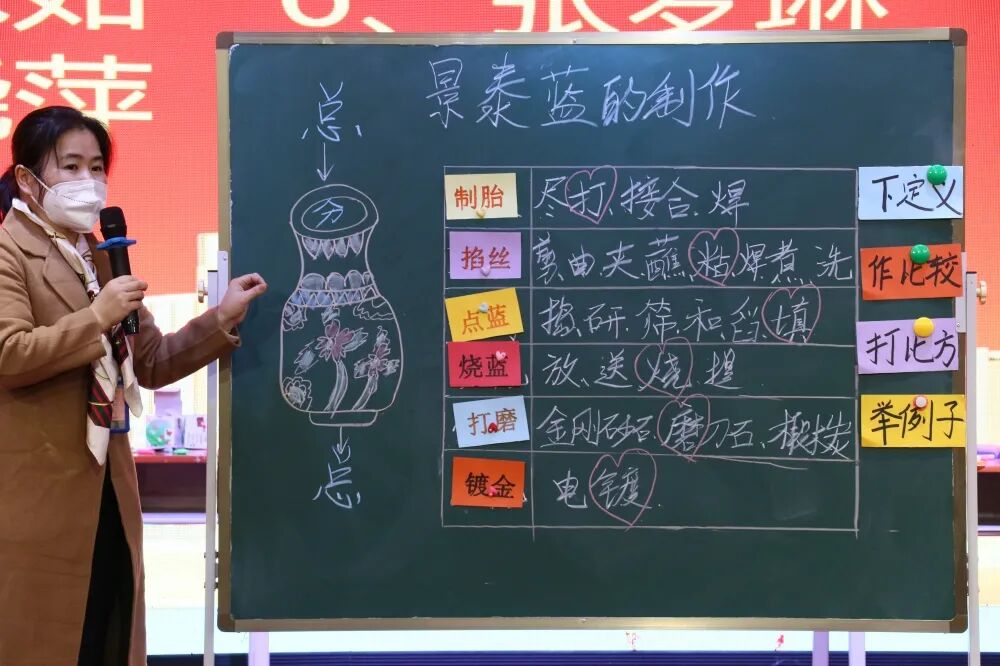 6、张梦琳
萍
景泰蓝的制作
总
分
总
制胎 尽打、接合、焊
掐丝 剪、曲、夹、蘸、粘、焊、煮、洗
点蓝 捣、研、筛、和、舀、填
烧蓝 放、送、烧、提
打磨 金刚砂石、磨刀石、椴木炭
镀金 电镀
下定义
作比较
打比方
举例子